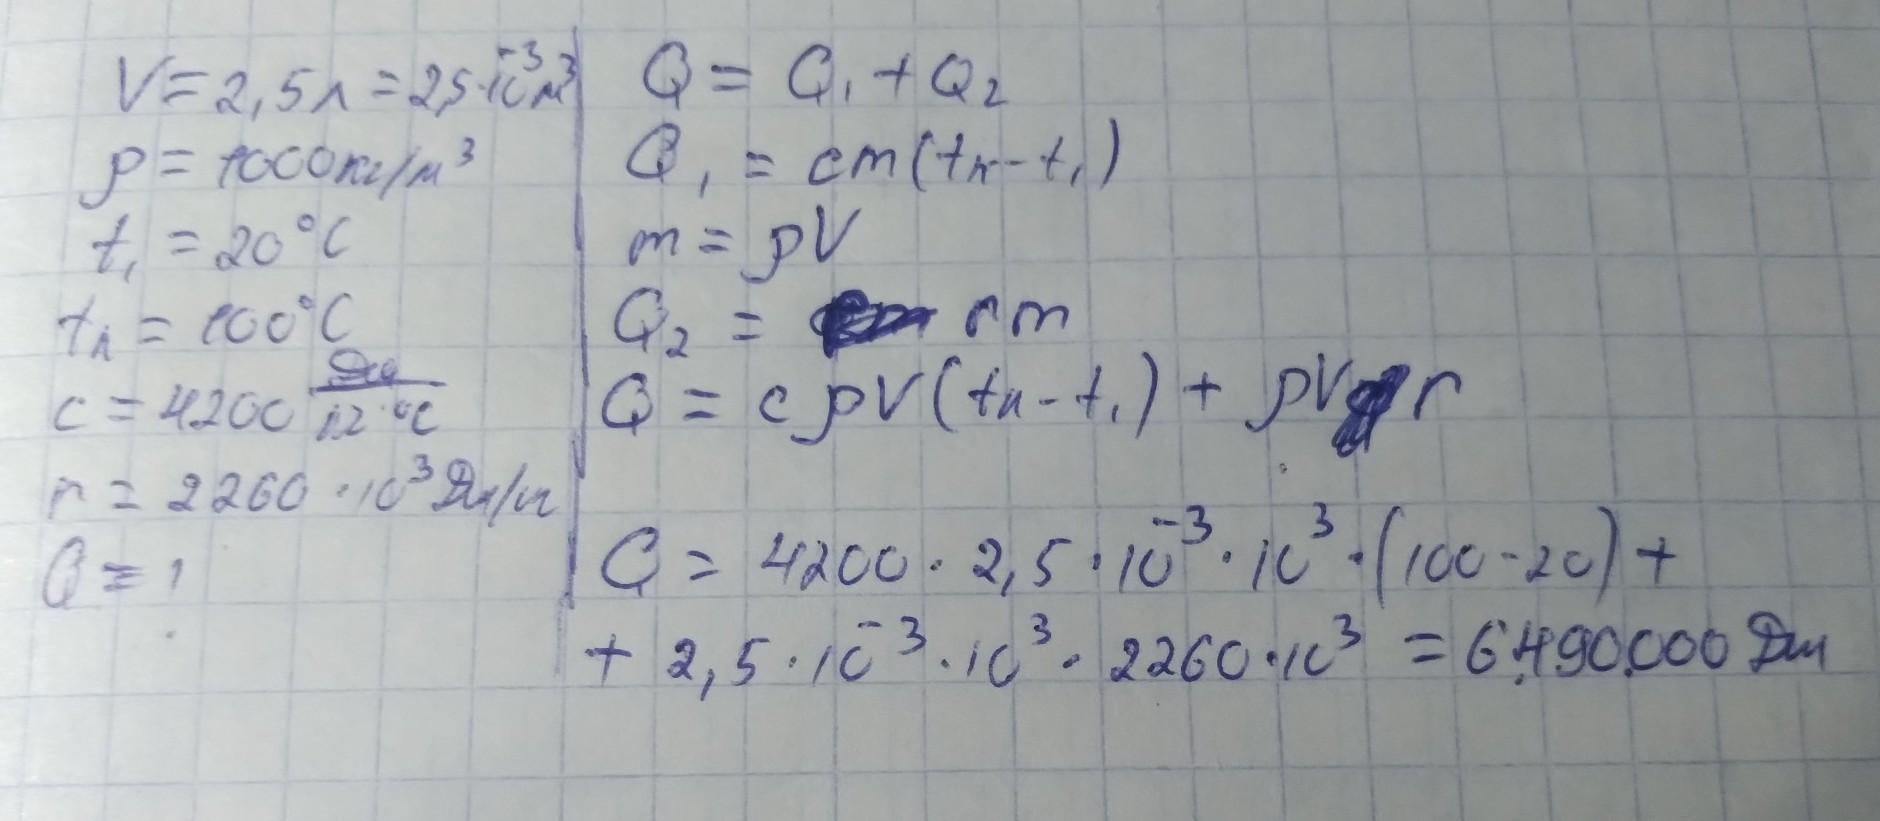 V = 2,5л = 2,5·10⁻³м³
ρ = 1000кг/м³
t₁ = 20°C
tк = 100°C
c = 4200 Дж/кг·°C
r = 2260·10³ Дж/кг
Q = ?
Q = Q₁ + Q₂
Q₁ = cm(tк - t₁)
m = ρV
Q₂ = rm
Q = cρV(tк - t₁) + ρVr
Q = 4200 · 2,5 · 10⁻³ · 10³ · (100 - 20) +
+ 2,5 · 10⁻³ · 10³ · 2260 · 10³ = 6.490.000 Дж